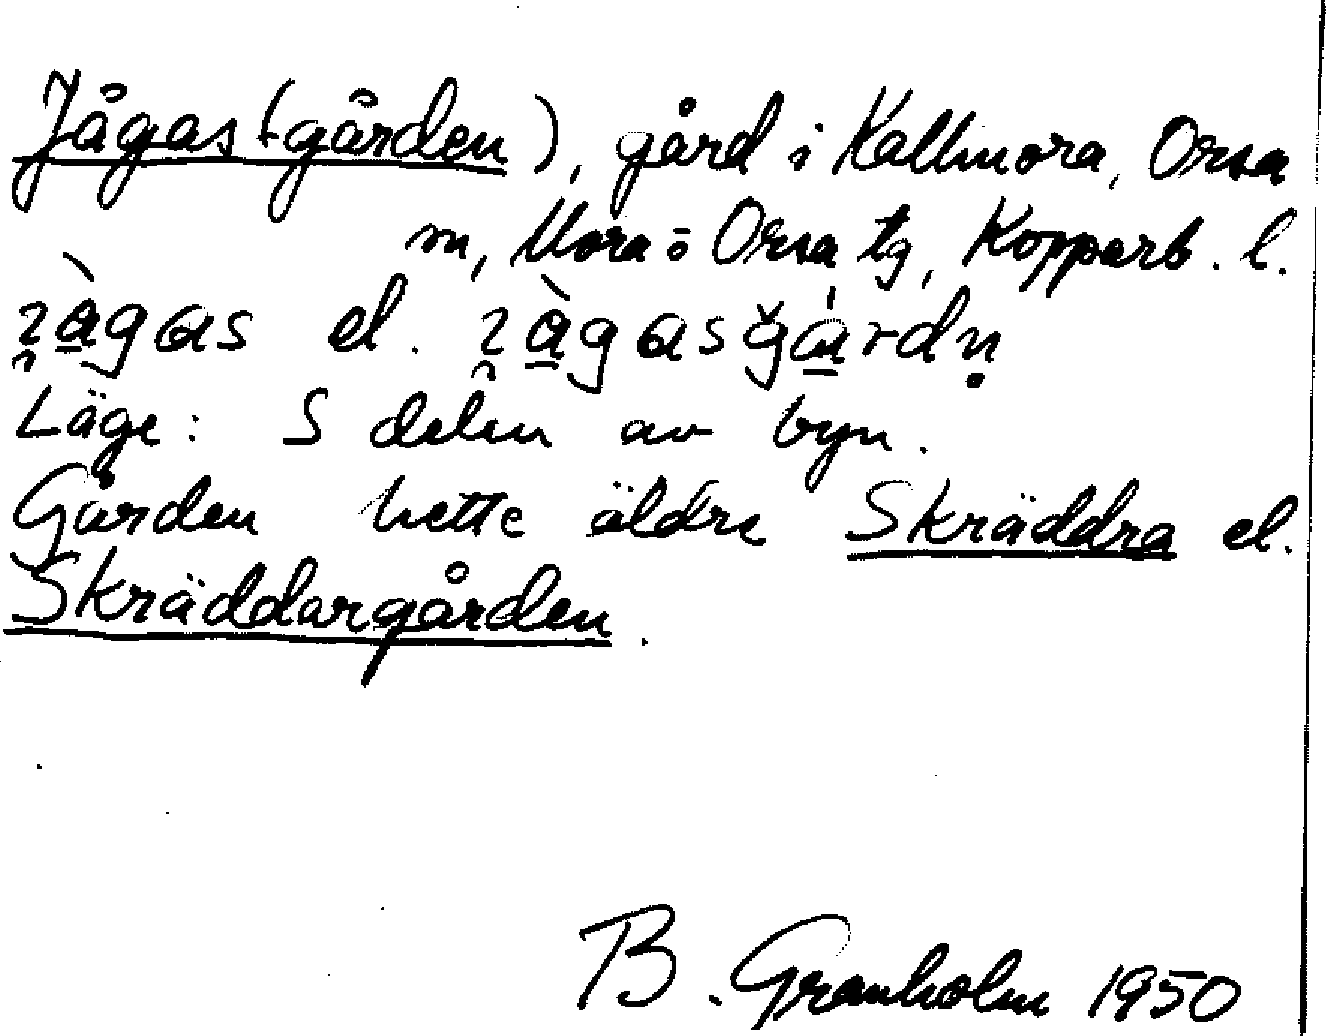 Jågas(-gården), gård i Kallmora, Orsa
sn, Mora o Orsa tg, Kopparb. l.
el.
Läge: S delen av byn.
Gården hette äldre Skräddra el.
Skräddargården.
B. Granholm 1950